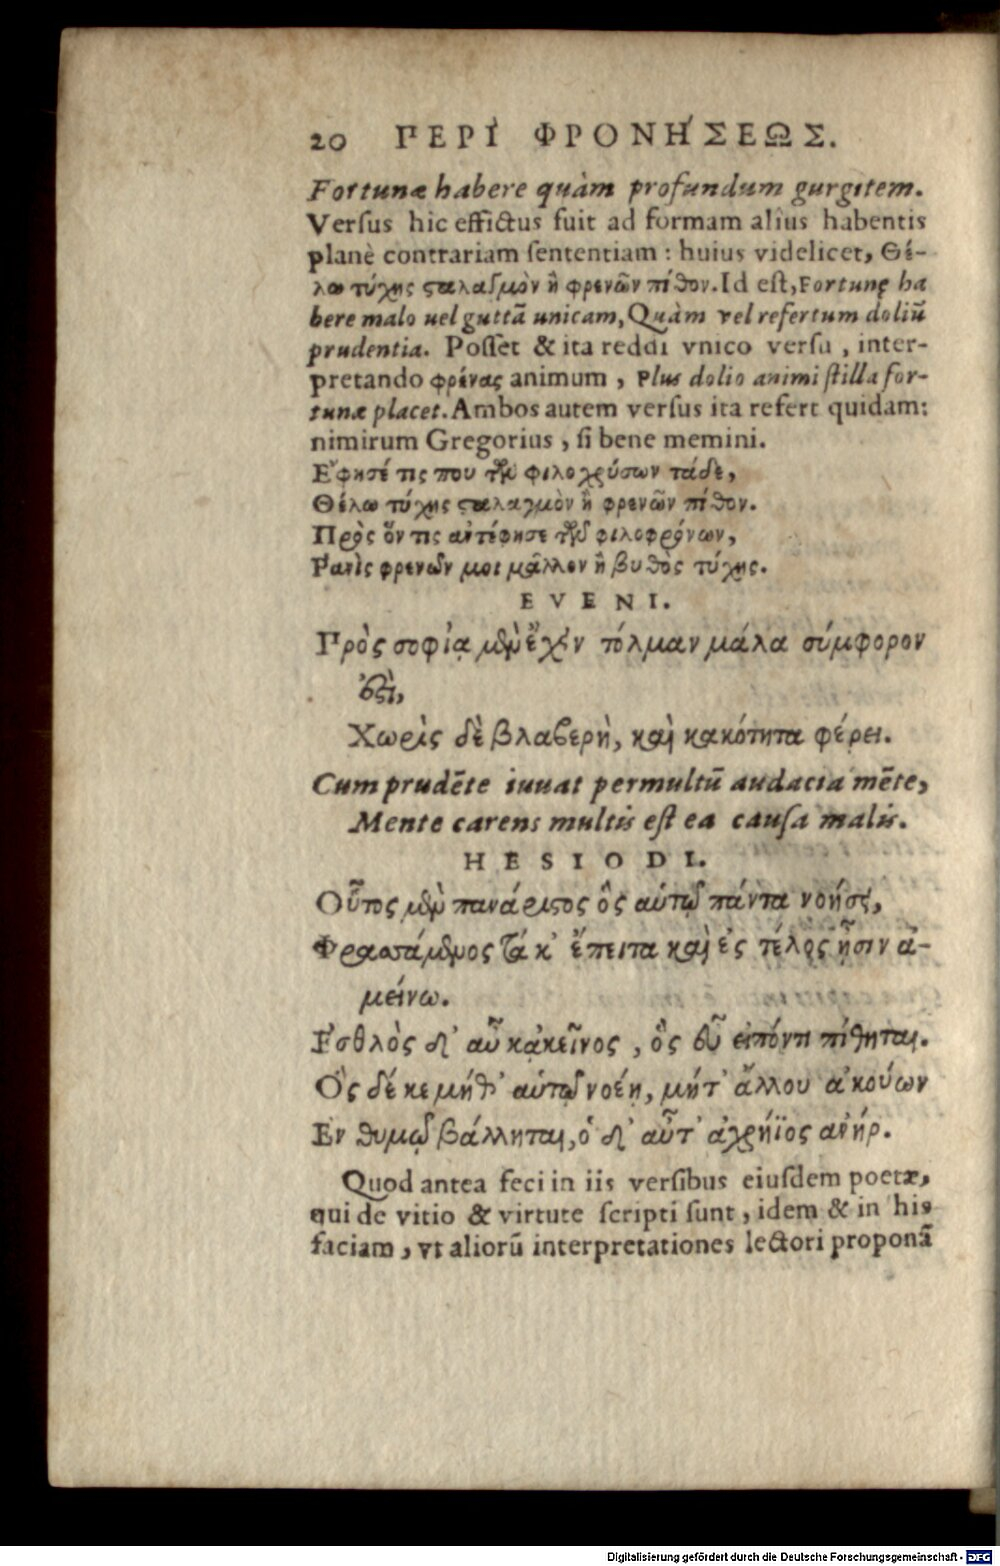 20 ΠΕΡῚ ΦΡΟΝΉΣΕΩΣ.
Fortunæ habere quàm profundum gurgitem.
Verſus hic effictus fuit ad formam alius habentis
planè contrariam ſententiam : huius videlicet, Θέ-
λω τύχης σταλαγμὸν ἢ φρενῶν πίθον. Id eſt, Fortunę ha
bere malo uel guttā unicam, Quàm vel refertum doliū
prudentia. Poſſet & ita reddi vnico verſu , inter-
pretando φρένας animum , Plus dolio animi ſtilla for-
tunæ placet. Ambos autem verſus ita refert quidam:
nimirum Gregorius , ſi bene memini.
Ε῎φησέ τις που τῶν φιλοχρύσων τάδε,
Θέλω τύχης σταλαγμὸν ἢ φρενῶν πίθον.
Πρὸς ὅν τις ἀντέφησε τῶν φιλοφρόνων,
Ρ῾ανὶς φρενῶν μοι μᾶλλον ἢ βυθὸς τύχης.
EVENI.
Πρὸς σοφίᾳ μὲν ἔχειν τόλμαν μάλα σύμφορον
ἐστὶ,
Χωρὶς δὲ βλαβερὴ, καὶ κακότητα φέρει.
Cum prudēte iuuat permultū audacia mēte,
Mente carens multis eſt ea cauſa malis.
HESIODI.
Οὗτος μὲν πανάριστος ὃς αὑτῷ πάντα νοήσει,
Φρασσάμενος τά κ' ἔπειτα καὶ ἐς τέλος ᾖσιν ἀ-
μείνω.
Ε᾿σθλὸς δ' αὖ κᾀκεῖνος , ὃς εὖ εἰπόντι πίθηται.
Ὃς δέ κε μήθ' αὑτῷ νοέῃ, μήτ' ἄλλου ἀκούων
Εν θυμῷ βάλληται, ὁ δ' αὖτ' ἀχρήϊος ἀνήρ.
Quod antea feci in iis verſibus eiuſdem poetæ,
qui de vitio & virtute ſcripti ſunt , idem & in his
faciam , vt aliorū interpretationes lectori proponā
Digitalisierung gefördert durch die Deutsche Forschungsgemeinschaft - DFG